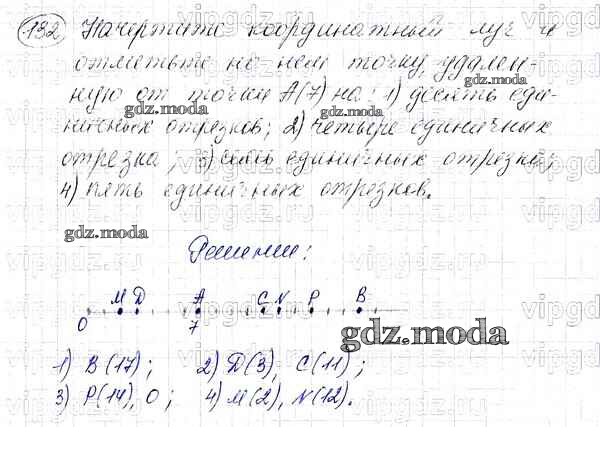 132 Начертите координатный луч и
отметьте на нем точку, удален-
ную от точки А(7) на: 1) десять еди-
ничных отрезков; 2) четыре единичных
отрезка; 3) семь единичных отрезков;
4) пять единичных отрезков.
Решение:
M D A C N P B
0 7
1) B(17); 2) D(3), C(11);
3) P(14), O; 4) M(2), N(12).
gdz.moda
gdz.moda
gdz.moda
gdz.moda
gdz.moda
gdz.moda
vipgdz